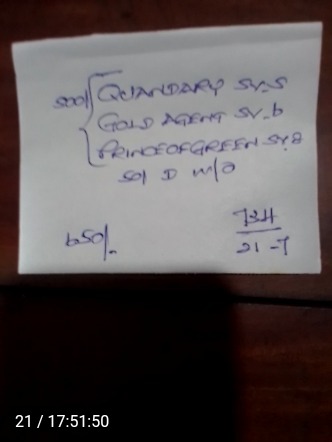 500/ QUANDARY SY.5
GOLD AGENT SY.6
PRINCEOFGREEN SY.8
50/ D W/O
650/.
734
21-7
21 / 17:51:50